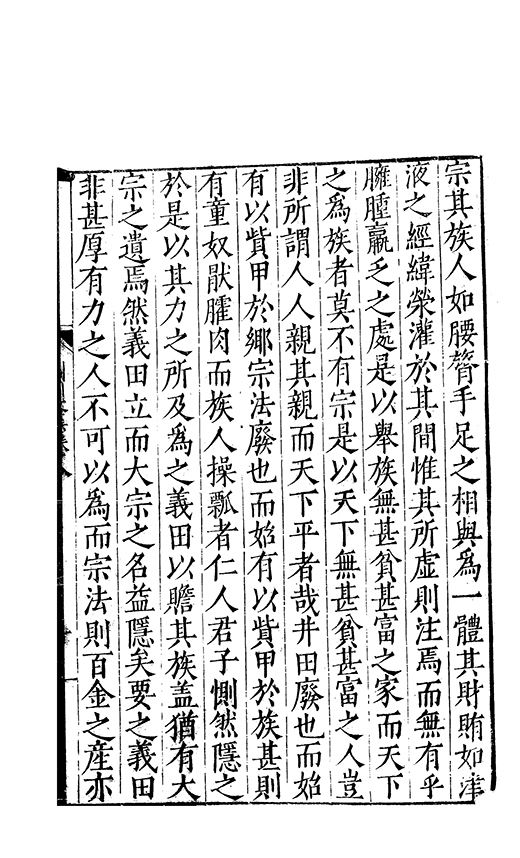 宗其族人如腰膂手足之相與爲一體其財賄如津
液之經緯榮灌於其間惟其所虛則注焉而無有乎
臃腫羸乏之處是以舉族無甚貧甚富之家而天下
之爲族者莫不有宗是以天下無甚貧甚富之人豈
非所謂人人親其親而天下平者哉井田廢也而始
有以貲甲於鄉宗法廢也而始有以貲甲於族甚則
有童奴猒臛肉而族人操瓢者仁人君子惻然隱之
於是以其力之所及爲之義田以贍其族蓋猶有大
宗之遺焉然義田立而大宗之名益隱矣要之義田
非甚厚有力之人不可以爲而宗法則百金之産亦